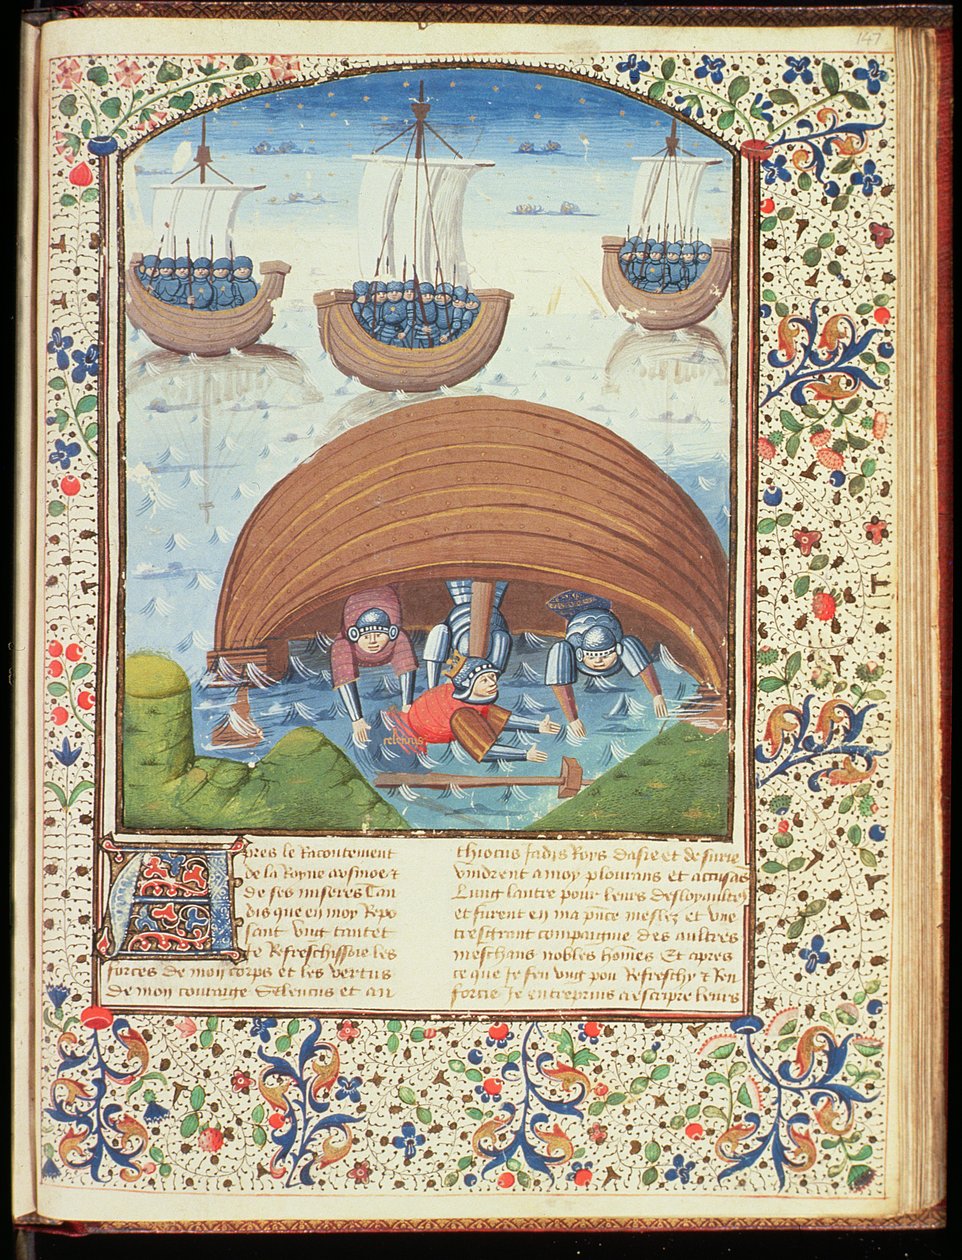 147
selencus
Apres le Racontement
de la Royne arsinoe et
de ses miseres Tan
dis que en moy Repo
sant ung tantet
Je Refreschissoie les
forces de mon corps et les vertus
de mon courage Selencus et an
thiocus jadis Roys dasie et de surie
vindrent a moy plourans et accusās
Lung lautre pour leurs desloyaultez
et furent en ma pn̄ce meslez et une
tresgrant compaignie des aultres
meschans nobles hom̄es Et apres
ce que je feu ung pou Refreschy et Ren
forcie Je entreprins a escripre leurs